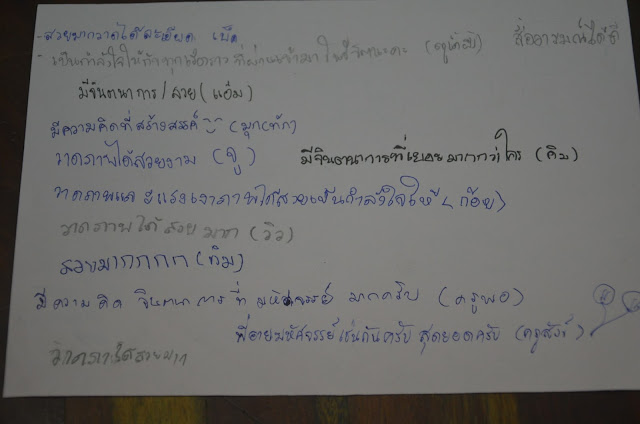 -สวยมากวาดได้ละเอียด เบ็ค
สื่ออารมณ์ได้ดี
-เป็นกำลังใจให้กับทุกเรื่องราว ที่ผ่านเข้ามา ในชีวิตนะคะ
มีจินตนาการ/สวย (แอ้ม)
มีความคิดที่สร้างสรรค์ (มุกทัก)
วาดภาพได้สวยงาม (จู)
มีจินตนาการที่เยอะมากกว่าใคร (คิม)
วาดภาพและแรงเงาภาพได้สวยเป็นกำลังใจให้ (ก้อย)
วาดภาพได้สวยมาก (วิว)
สวยมากกกก (ทิม)
มีความคิด จินตนาการที่ มหัศจรรย์ มากครับ (ครูพอ)
พี่อายมหัศจรรย์เช่นกันครับ สุดยอดครับ (ครูสังข์)
วาดภาพได้สวยมาก